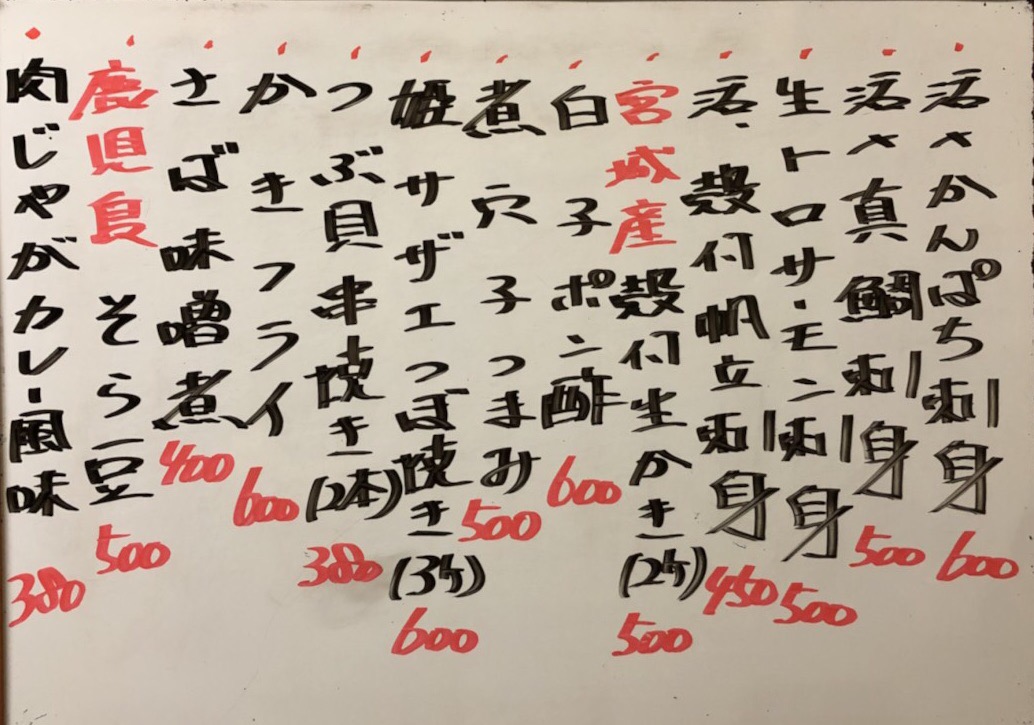 活〆かんぱち刺身 600
活〆真鯛刺身 500
生トロサーモン刺身 500
活、殻付帆立刺身 450
宮城産 殻付生かき(2ヶ) 500
白子ポン酢 600
煮穴子つまみ 500
姫サザエつぼ焼き(3ヶ) 600
つぶ貝串焼き(2本) 380
かきフライ 600
さば味噌煮 400
鹿児島 そら豆 500
肉じゃがカレー風味 380